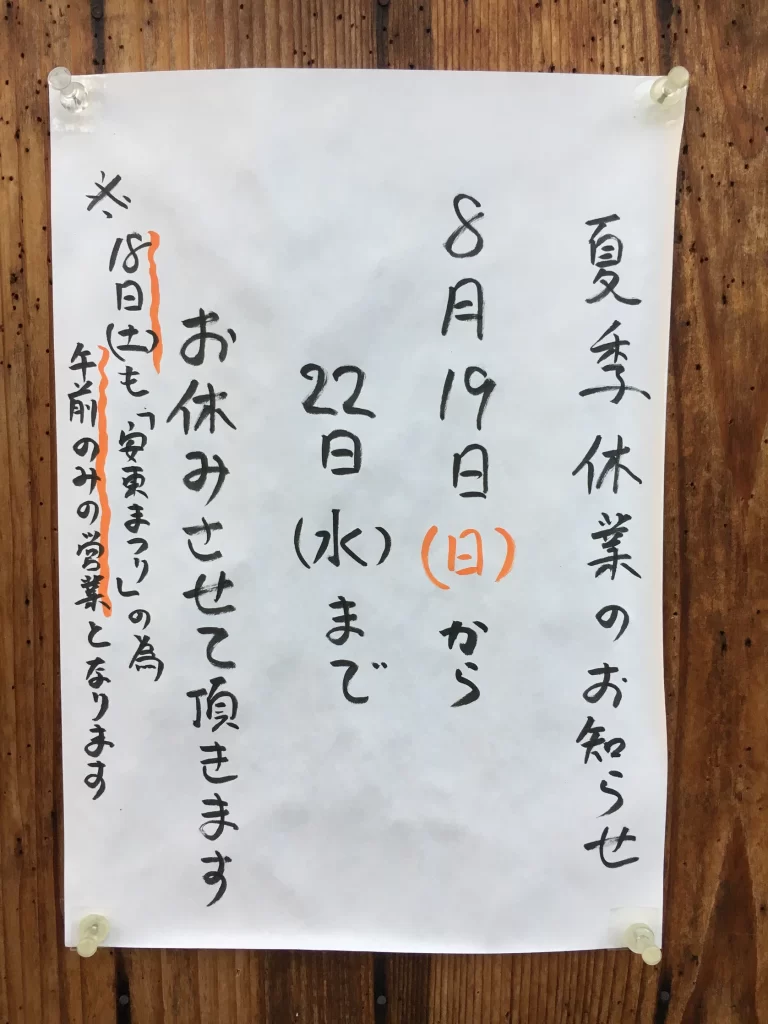 夏季休業のお知らせ
8月19日(日)から
22日(水)まで
お休みさせて頂きます
※18日(土)も「安東まつり」の為
午前のみの営業となります